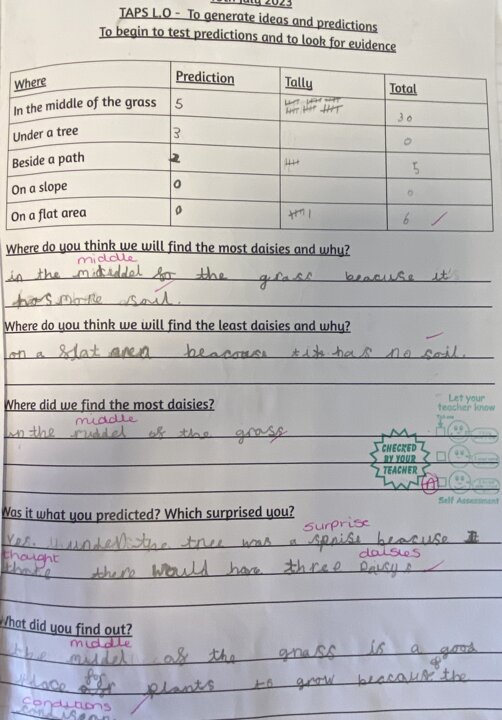 July 2023
TAPS L.O - To generate ideas and predictions
To begin to test predictions and to look for evidence
Where Prediction Tally Total
In the middle of the grass 5 30
Under a tree 3 0
Beside a path 2 5
On a slope 0 0
On a flat area 0 6
Where do you think we will find the most daisies and why?
middle
in the the grass beacuse it's
has more soil.
Where do you think we will find the least daisies and why?
on a has no soil.
Where did we find the most daisies?
middle
in the middel of the grass
Let your
teacher know
CHECKED
BY YOUR
TEACHER
Self Assessment
Was it what you predicted? Which surprised you?
surprise
Yes. the tree was a beacuse I
thought daisies
there would have three Daisy's
What did you find out?
middle
the middel of the grass is a good
for of
place plants to grow the
conditions